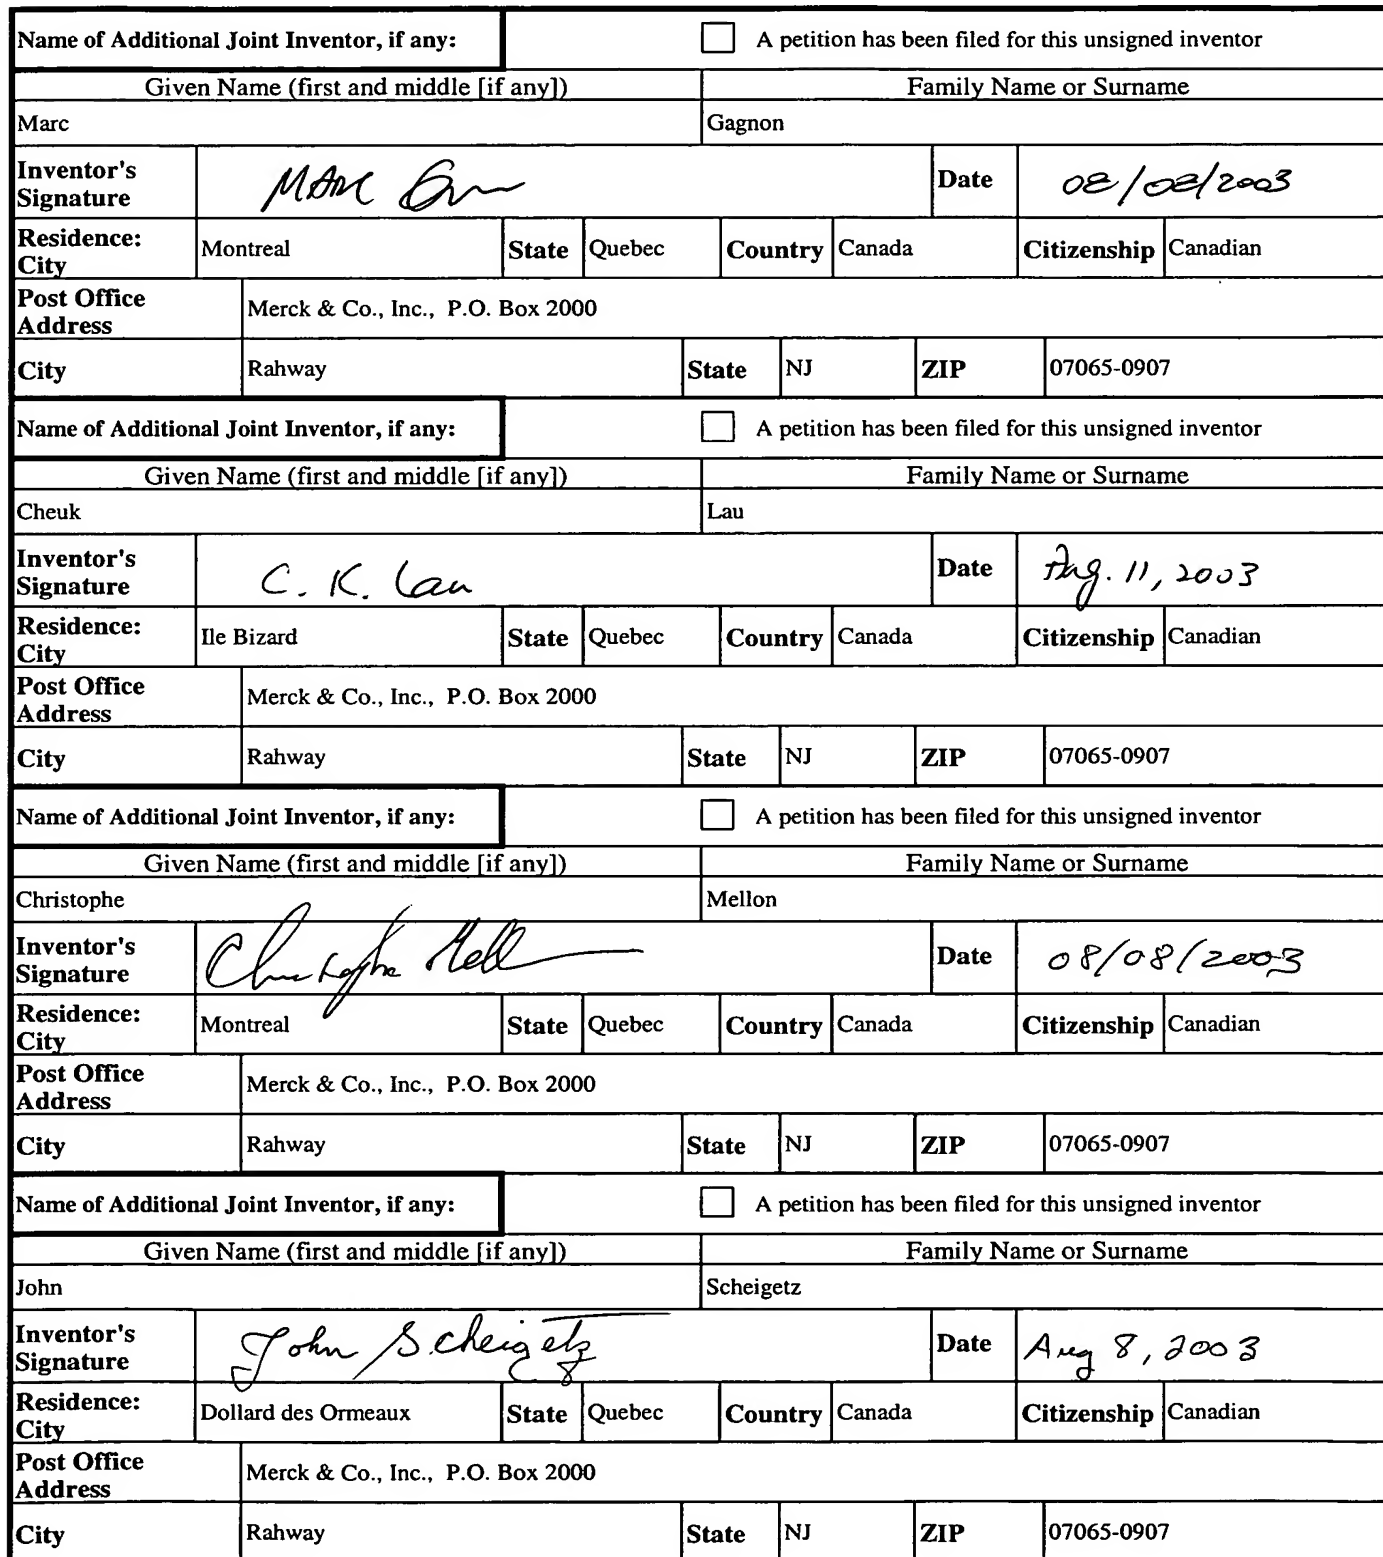 Name of Additional Joint Inventor, if any: A petition has been filed for this unsigned inventor
Given Name (first and middle [if any]) Family Name or Surname
Marc Gagnon
Inventor's Signature Marc Date 08/08/2003
Residence: City Montreal State Quebec Country Canada Citizenship Canadian
Post Office Address Merck & Co., Inc., P.O. Box 2000
City Rahway State NJ ZIP 07065-0907
Name of Additional Joint Inventor, if any: A petition has been filed for this unsigned inventor
Given Name (first and middle [if any]) Family Name or Surname
Cheuk Lau
Inventor's Signature C. K. Lau Date Aug. 11, 2003
Residence: City Ile Bizard State Quebec Country Canada Citizenship Canadian
Post Office Address Merck & Co., Inc., P.O. Box 2000
City Rahway State NJ ZIP 07065-0907
Name of Additional Joint Inventor, if any: A petition has been filed for this unsigned inventor
Given Name (first and middle [if any]) Family Name or Surname
Christophe Mellon
Inventor's Signature Christophe Mell Date 08/08/2003
Residence: City Montreal State Quebec Country Canada Citizenship Canadian
Post Office Address Merck & Co., Inc., P.O. Box 2000
City Rahway State NJ ZIP 07065-0907
Name of Additional Joint Inventor, if any: A petition has been filed for this unsigned inventor
Given Name (first and middle [if any]) Family Name or Surname
John Scheigetz
Inventor's Signature John Scheigetz Date Aug 8, 2003
Residence: City Dollard des Ormeaux State Quebec Country Canada Citizenship Canadian
Post Office Address Merck & Co., Inc., P.O. Box 2000
City Rahway State NJ ZIP 07065-0907